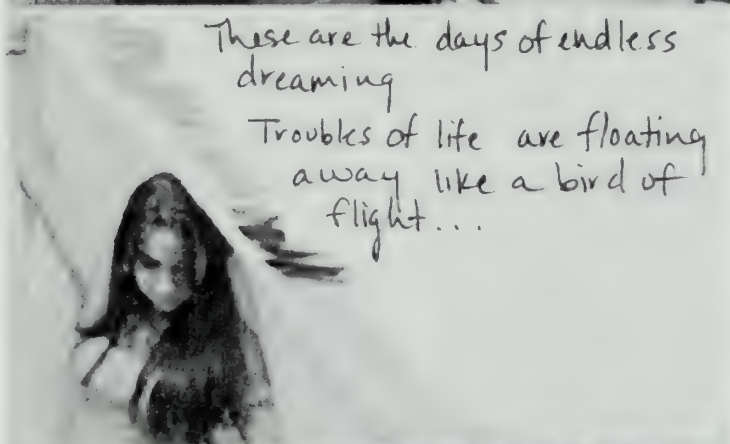 These are the days of endless
dreaming
Troubles of life are floating
away like a bird of
flight...